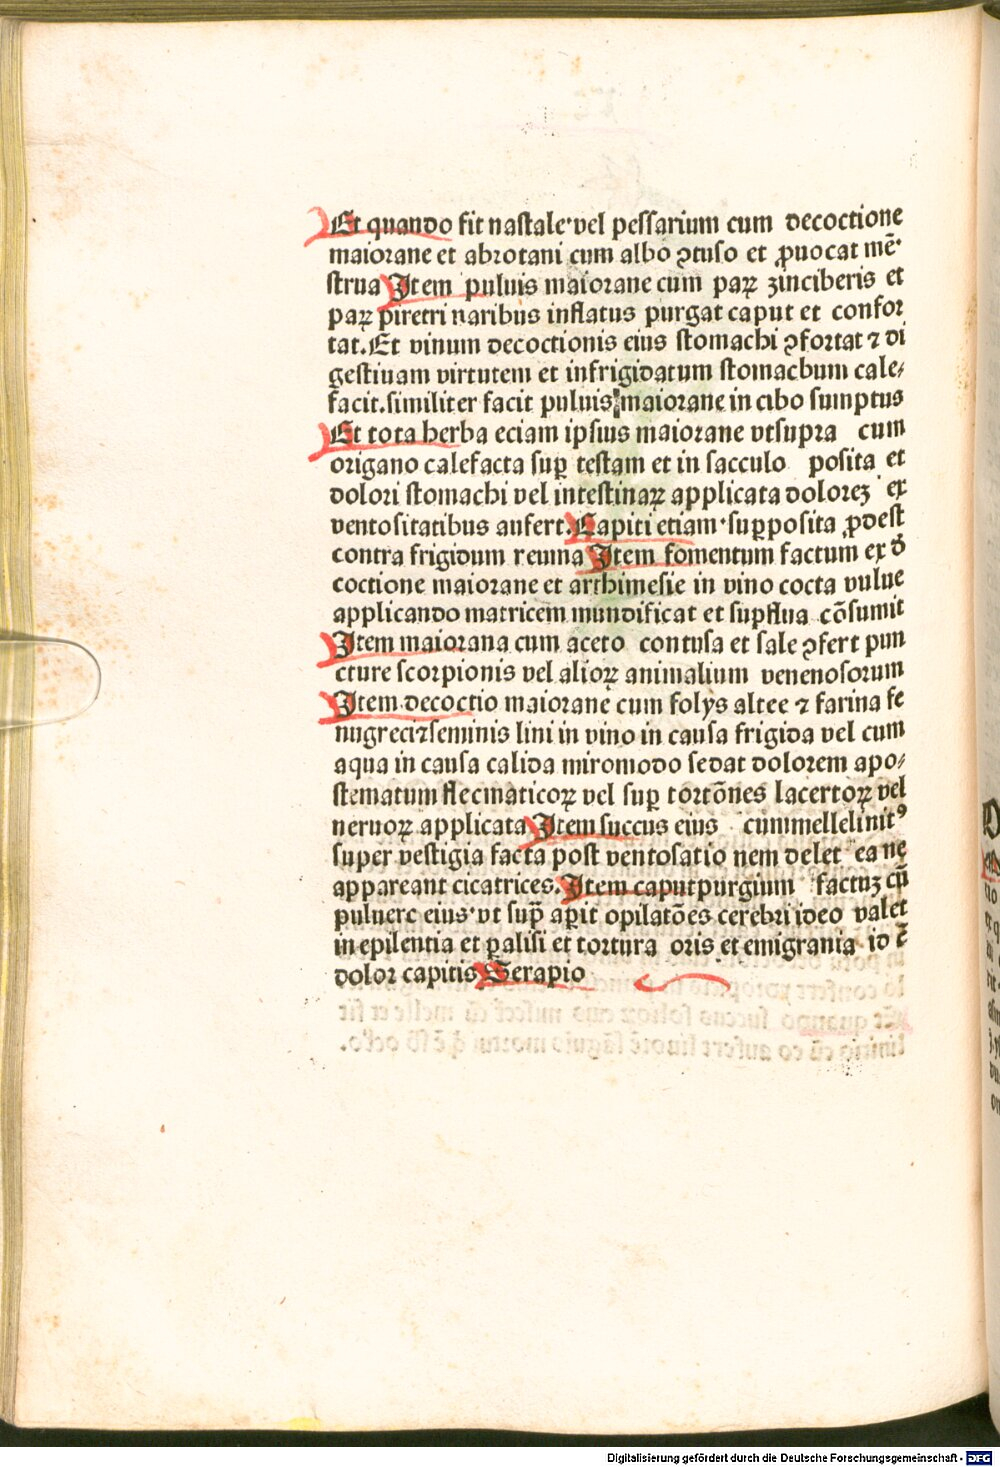 Et quando fit nastale·vel pessarium cum decoctione
maiorane et abrotani cum albo ꝯtuso et ꝓuocat mē·
strua Item puluis maiorane cum paꝝ zinciberis et
paꝝ piretri naribus inflatus purgat caput et confor
tat. Et vinum decoctionis eius stomachi ꝯfortat ⁊ di
gestiuam virtutem et infrigidatum stomachum cale⸗
facit.similiter facit puluis maiorane in cibo sumptus
Et tota herba eciam ipsius maiorane vtsupra cum
origano calefacta suꝑ testam et in sacculo posita et
dolori stomachi vel intestinaꝝ applicata doloreꝫ ex
ventositatibus aufert. Capiti etiam·suꝑposita ꝓdest
contra frigidum reuma Item fomentum factum ex đ
coctione maiorane et arthimesie in vino cocta vulue
applicando matricem mundificat et supflua cōsumit
Item maiorana cum aceto contusa et sale ꝯfert pun
cture scorpionis vel alioꝝ animalium venenosorum
Item decoctio maiorane cum folys altee ⁊ farina fe
nugreci⁊seminis lini in vino in causa frigida vel cum
aqua in causa calida miromodo sedat dolorem apo⸗
stematum flecmaticoꝝ vel suꝑ tortōnes lacertoꝝ vel
neruoꝝ applicata Item succus eius cummellelinitꝰ
super vestigia facta post ventosatio nem delet ea ne
appareant cicatrices. Item caputpurgium factuꝫ cū
puluere eius·vt suꝑ aꝑit opilatōes cerebri ideo valet
in epilentia et ꝑalisi et tortura oris et emigrania id ē
dolor capitis Serapio
Digitalisierung gefördert durch die Deutsche Forschungsgemeinschaft - DFG